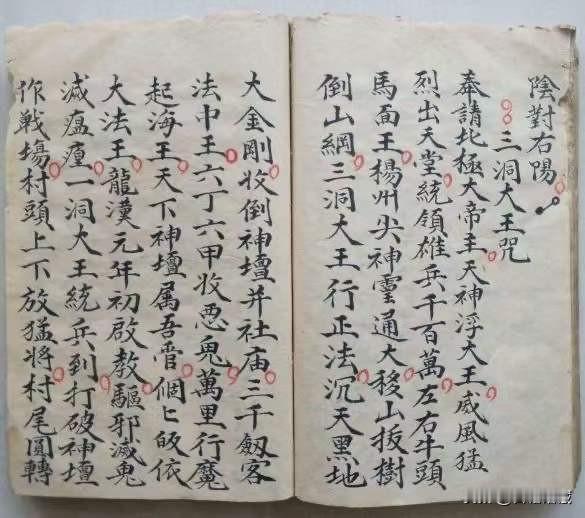 陰對右陽
三洞大王咒
奉請北極大帝主天神浮大王威風猛
烈出天堂統領雄兵千百萬左右牛頭
馬面王楊州尖神靈通大移山拔樹
倒山綱三洞大王行正法沉天黑地
大金剛收倒神壇并社庙三千劔客
法巾王六丁六甲收惡鬼萬里行魔
起海王天下神壇属吾管個匕皈依
大法王龍漢元年初啟教驅邪滅鬼
滅瘟瘟一洞大王統兵到打破神壇
作戰場村頭上下放猛將村尾圓轉